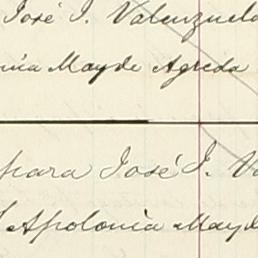 José J. Valenzuela
nia Mayde Agreda
para José J. Va
Apolonia Mayd